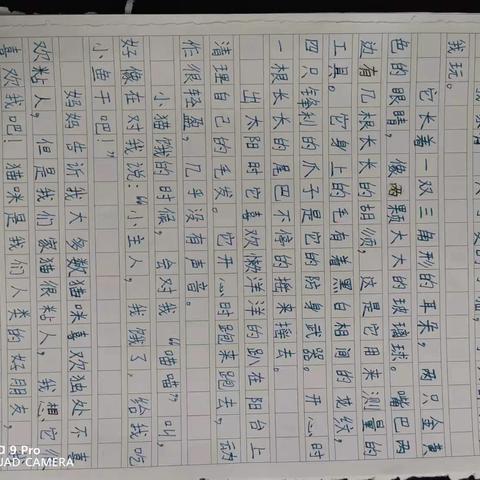 我玩。
它长着一双三角形的耳朵，两只金黄
色的眼睛，像两颗大大的玻璃球。嘴巴两
边有几根长长的胡须，这是它用来测量的
工具。它身上的毛有着黑白相间的花纹，
四只锋利的爪子是它的防身武器。开心时
一根长长的尾巴不停的摇来摇去。
出太阳时它喜欢懒洋洋的趴在阳台上
清理自己的毛发。它开心时跑来跑去，动
作很轻盈，几乎没有声音。
小猫饿的时候，会对我“喵喵”叫，
好像在对我说：“小主人，我饿了，给我吃
小鱼干吧！”
妈妈告诉我大多数猫咪喜欢独处不喜
欢粘人，但是我们家猫很粘人，我想它很
喜欢我吧！猫咪是我们人类的好朋友，
9 Pro
CAMERA